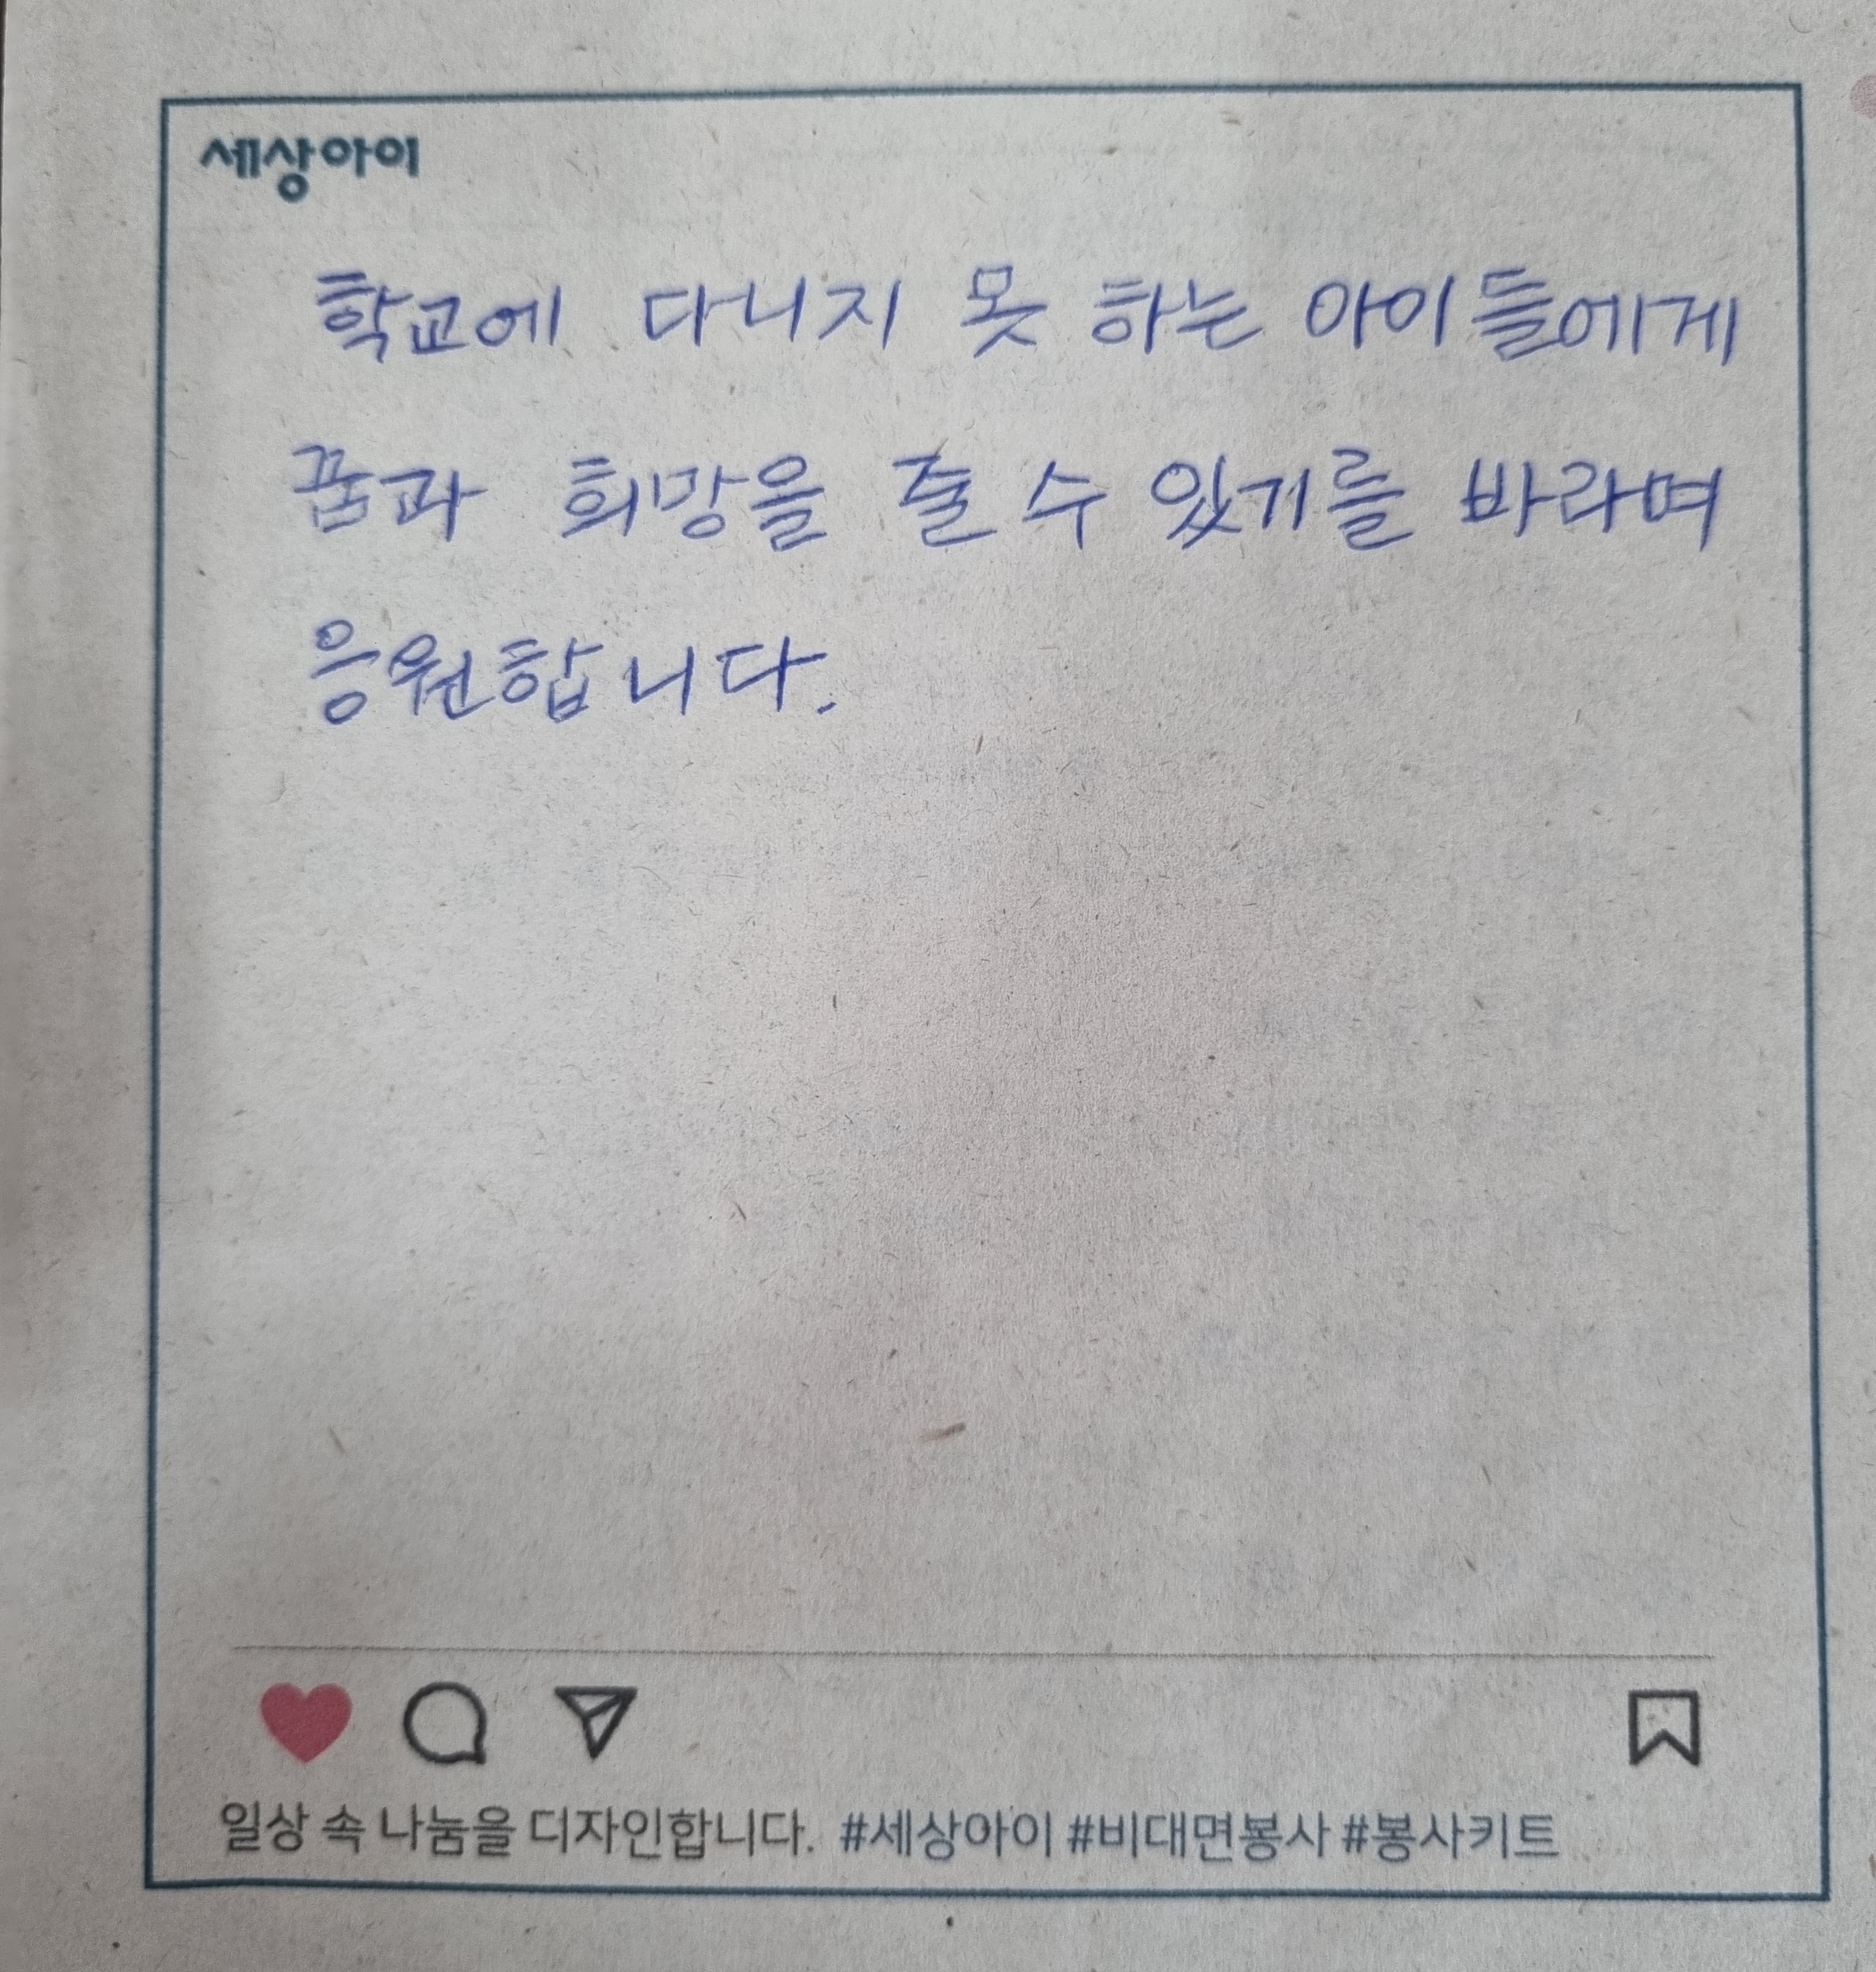 세상아이
학교에 다니지 못 하는 아이들에게
꿈과 희망을 줄 수 있기를 바라며
응원합니다.
일상 속 나눔을 디자인합니다. #세상아이 #비대면봉사 #봉사키트